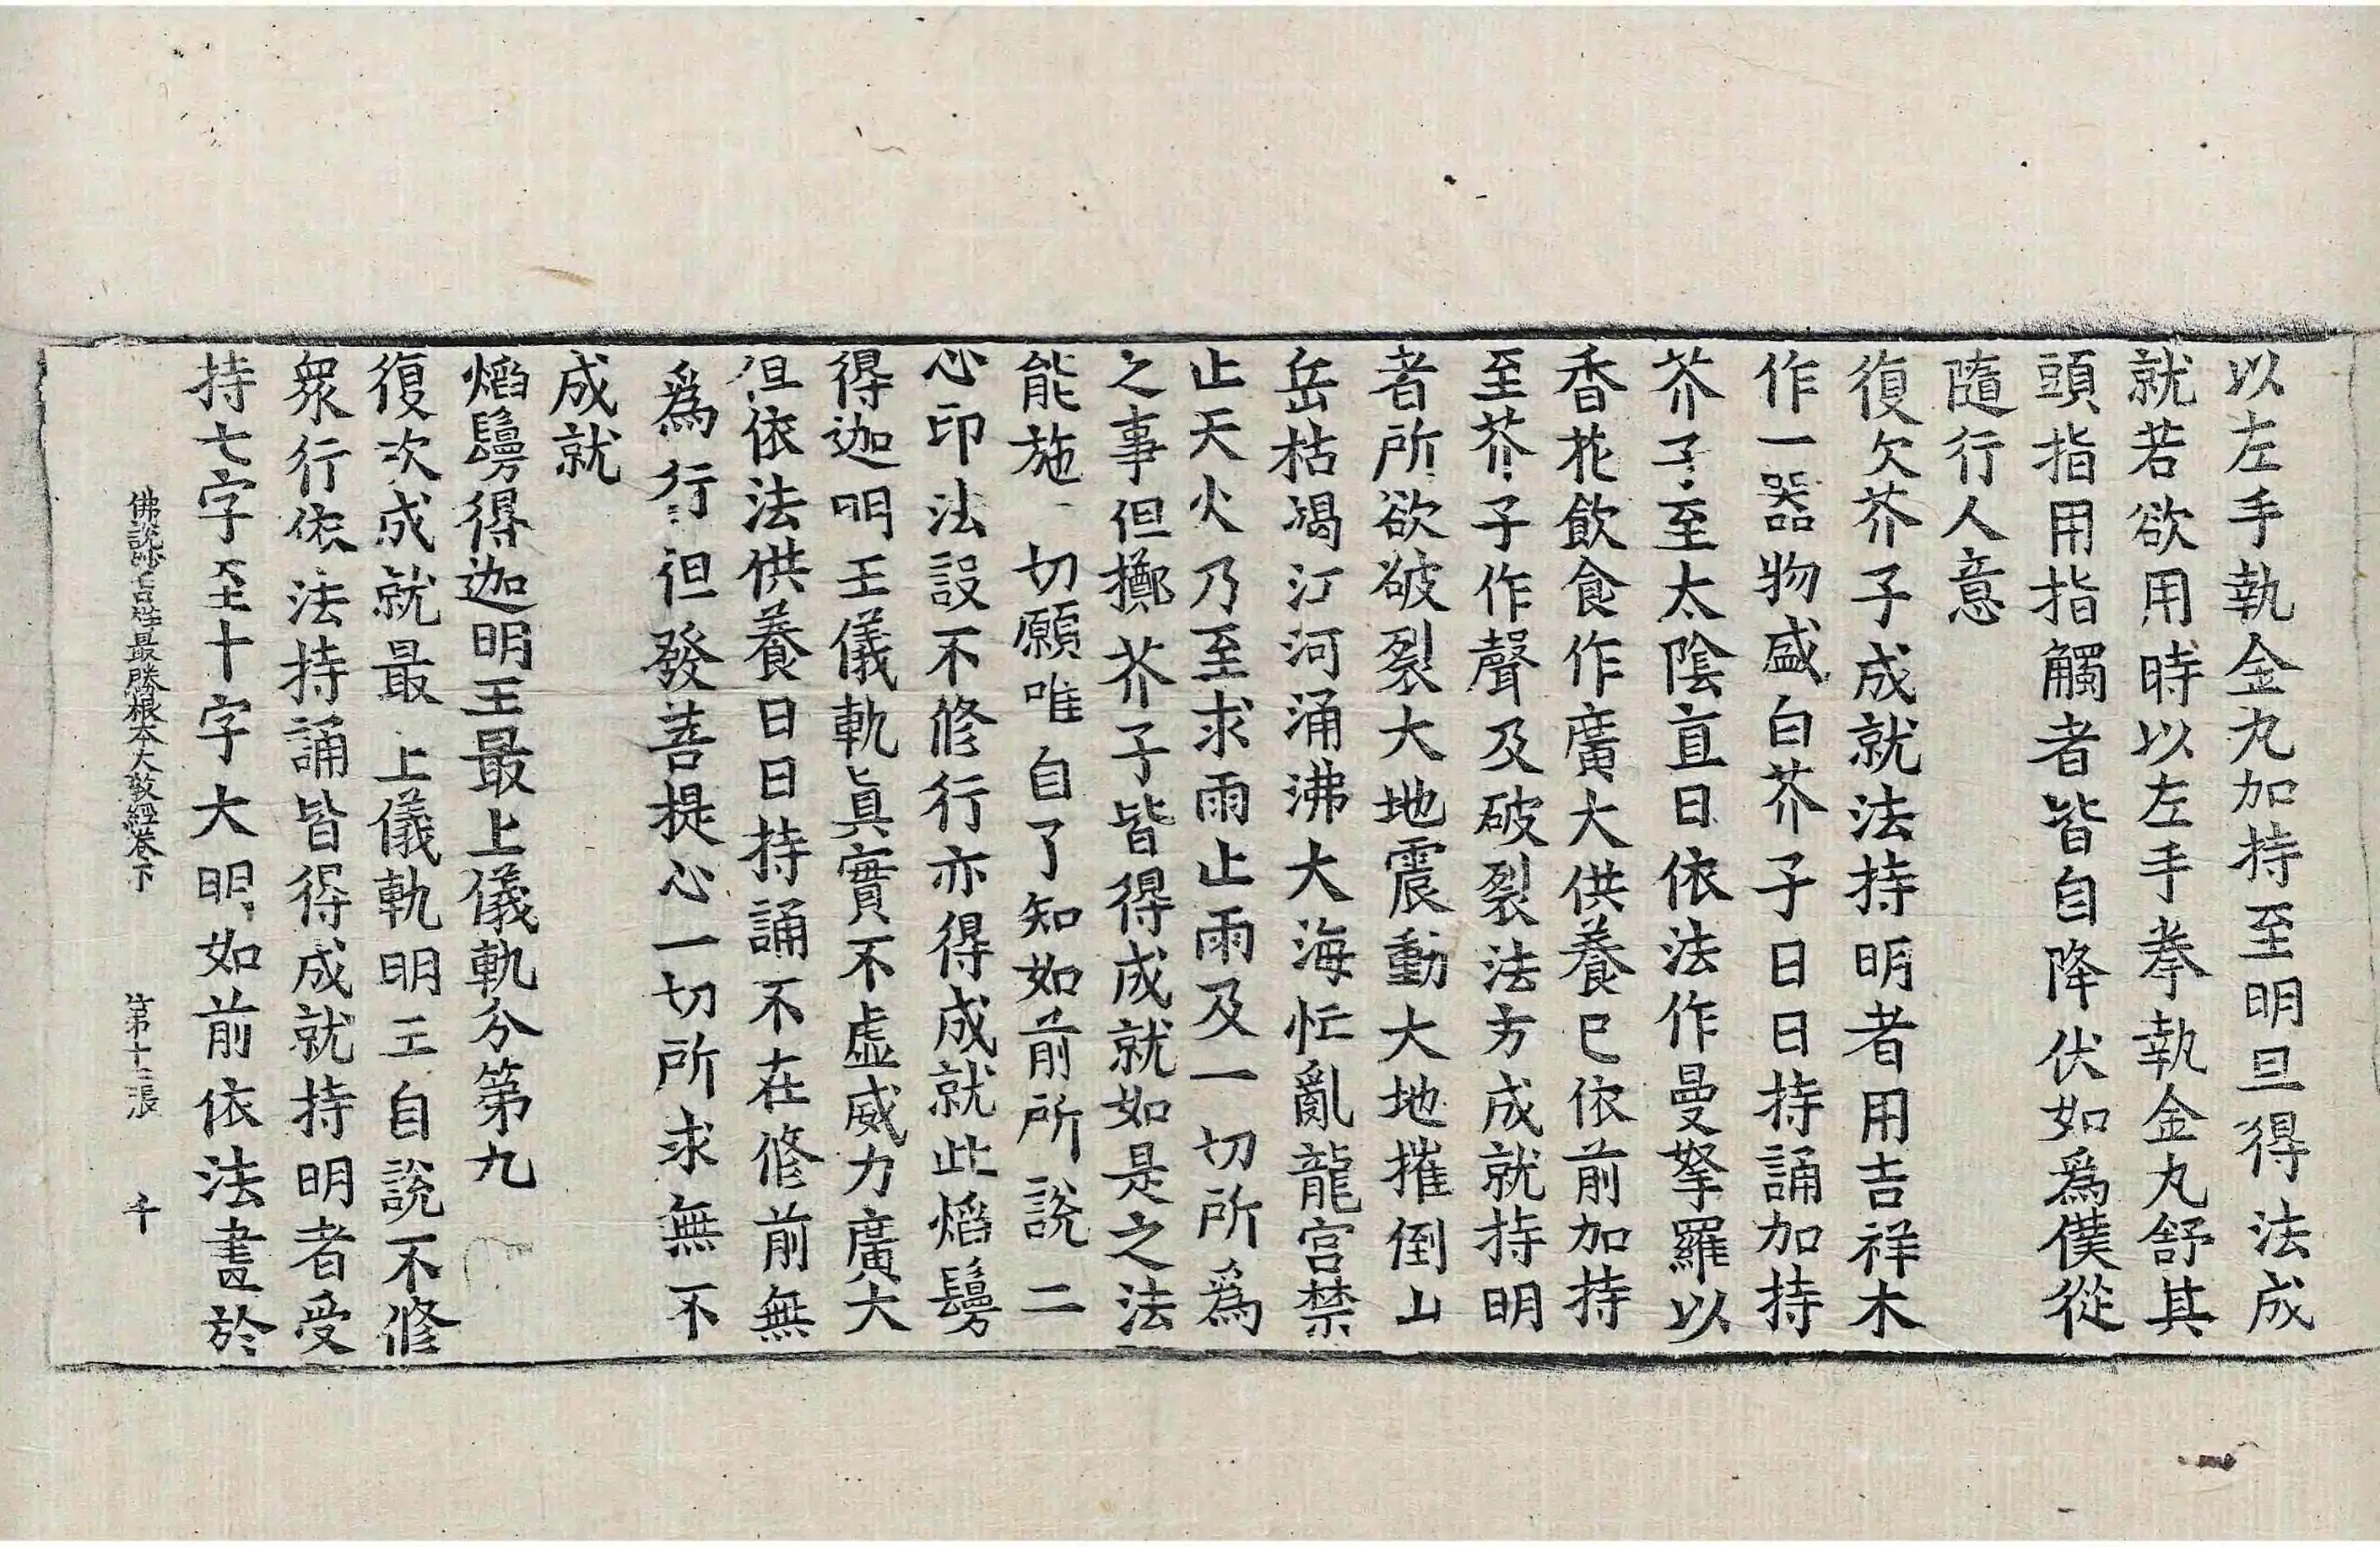 以左手執金丸加持至明旦得法成
就若欲用時以左手拳執金丸舒其
頭指用指觸者皆自降伏如爲僕從
隨行人意
復次芥子成就法持明者用吉祥木
作一器物盛白芥子日日持誦加持
芥子至太陰直日依法作曼拏羅以
香花飲食作廣大供養已依前加持
至芥子作聲及破裂法方成就持明
者所欲破裂大地震動大地摧倒山
岳枯竭江河涌沸大海忙亂龍宮禁
止天火乃至求雨止雨及一切所爲
之事但擲芥子皆得成就如是之法
能施一切願唯自了知如前所說二
心印法設不修行亦得成就此熖鬘
得迦明王儀軌眞實不虛威力廣大
但依法供養日日持誦不在修前無
爲行但發菩提心一切所求無不
成就
熖鬘得迦明王最上儀軌分第九
復次成就最上儀軌明王自說不修
衆行依法持誦皆得成就持明者受
持七字至十字大明如前依法畫於
佛說妙吉祥最勝根本大教經卷下 第十張 千